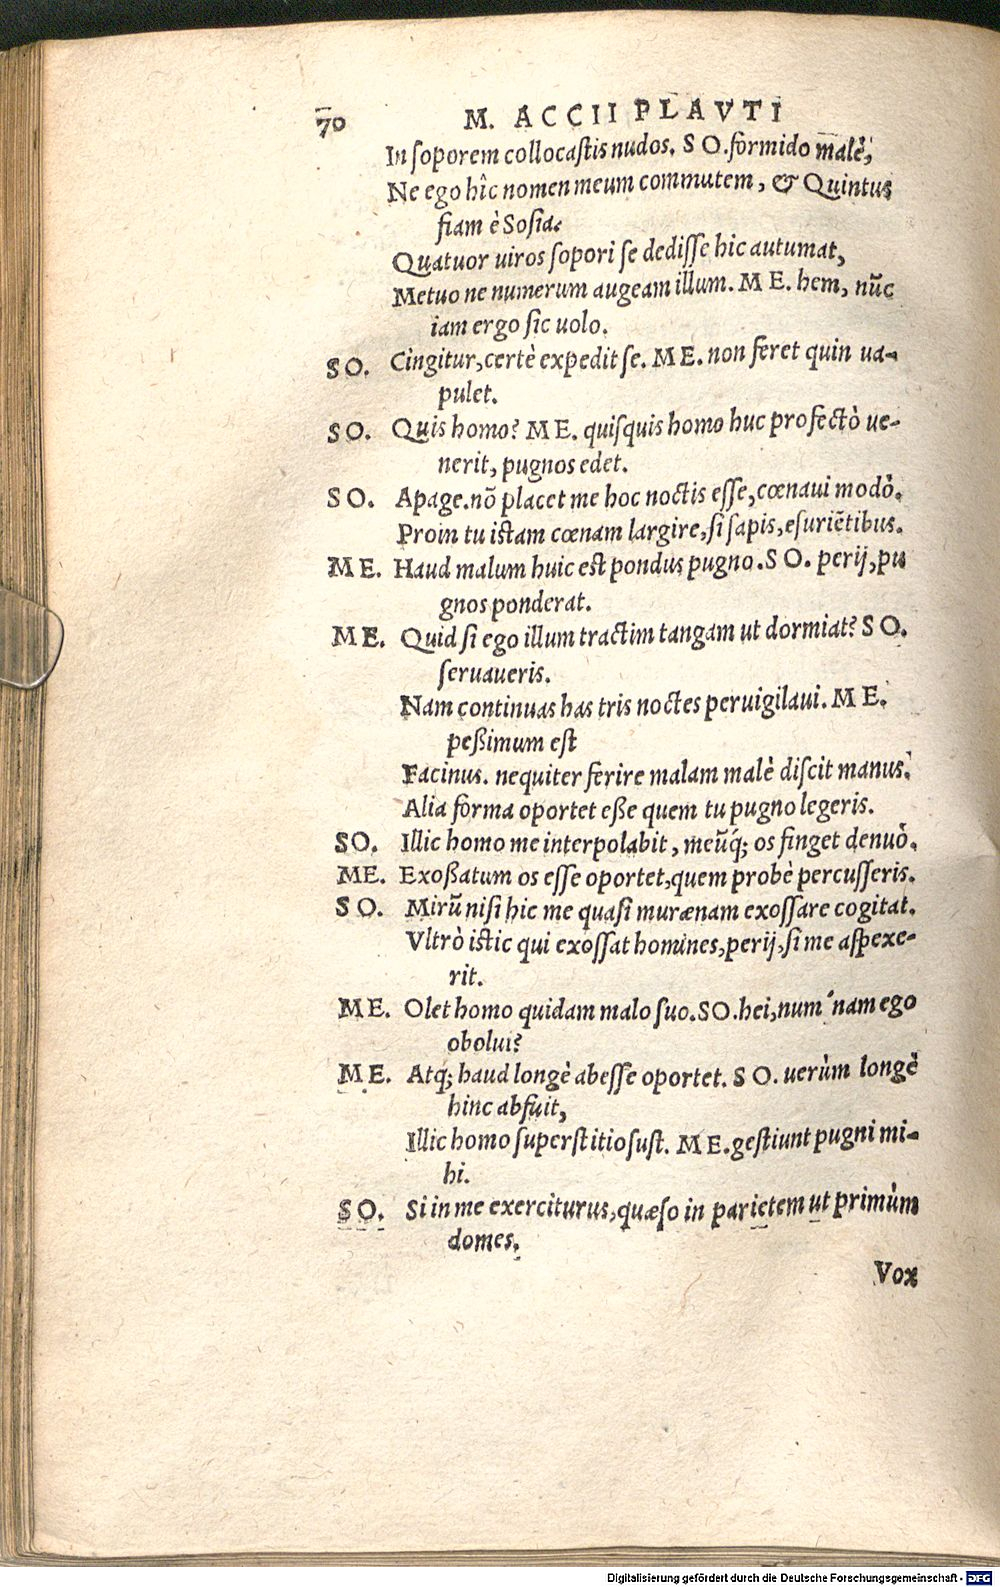 70 M. ACCII PLAVTI
In ſoporem collocaſtis nudos. SO. formido malè,
Ne ego hîc nomen meum commutem, & Quintus
fiam è Sosia.
Quatuor uiros ſopori ſe dediſſe hic autumat,
Metuo ne numerum augeam illum. ME. hem, nũc
iam ergo ſic uolo.
SO. Cingitur, certè expedit ſe. ME. non feret quin ua-
pulet.
SO. Quis homo? ME. quiſquis homo huc profectò ue-
nerit, pugnos edet.
SO. Apage. nõ placet me hoc noctis eſſe, cœnaui modò.
Proin tu iſtam cœnam largire, ſi ſapis, eſuriẽtibus.
ME. Haud malum huic eſt pondus pugno. SO. perij, pu
gnos ponderat.
ME. Quid ſi ego illum tractim tangam ut dormiat? SO.
ſeruaueris.
Nam continuas has tris noctes peruigilaui. ME.
peßimum eſt
Facinus. nequiter ferire malam malè diſcit manus.
Alia forma oportet eße quem tu pugno legeris.
SO. Illic homo me interpolabit, meũq́; os finget denuò.
ME. Exoßatum os eſſe oportet, quem probè percuſſeris.
SO. Mirũ niſi hic me quaſi murænam exoſſare cogitat.
Vltrò iſtic qui exoſſat homines, perij, ſi me aſpexe-
rit.
ME. Olet homo quidam malo ſuo. SO. hei, num'nam ego
obolui?
ME. Atq; haud longè abeſſe oportet. SO. uerùm longè
hinc abfuit,
Illic homo ſuperſtitioſuſt. ME. geſtiunt pugni mi-
hi.
SO. Si in me exerciturus, quæſo in parietem ut primùm
domes.
Vox
Digitalisierung gefördert durch die Deutsche Forschungsgemeinschaft - DFG